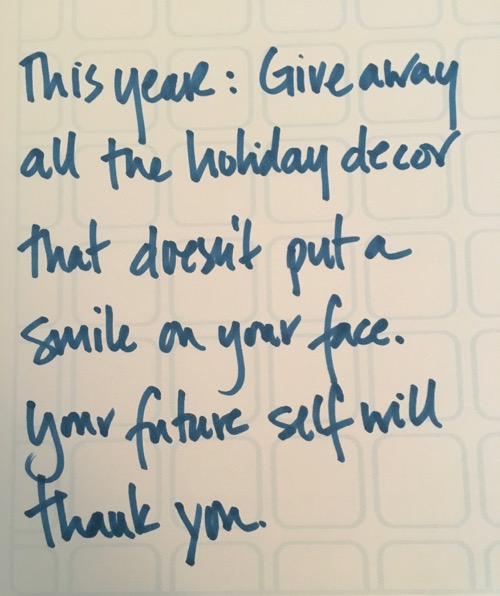 This year: Give away
all the holiday decor
that doesn't put a
smile on your face.
your future self will
thank you.